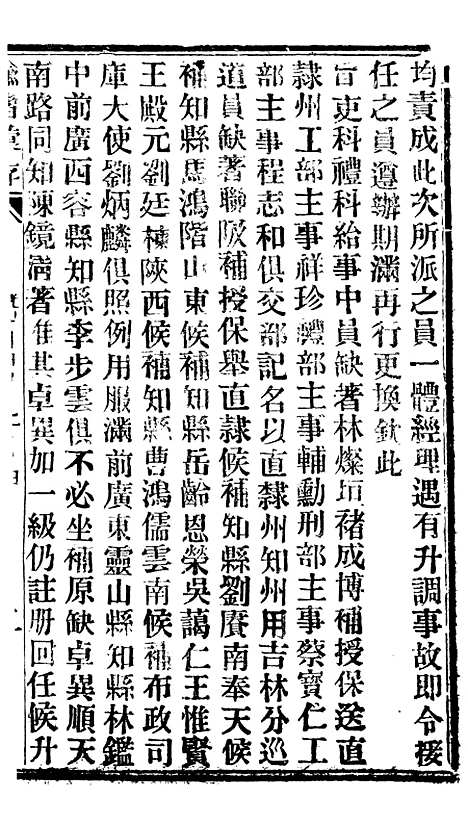 均責成此次所派之員一體經理遇有升調事故即令接
任之員遵辦期滿再行更換欽此
旨吏科禮科給事中員缺著林燦垣褚成博補授保送直
隸州工部主事祥珍禮部主事輔勳刑部主事蔡寶仁工
部主事程志和俱交部記名以直隸州知州用吉林分巡
道員缺著聯陞補授保舉直隸候補知縣劉賡南奉天候
補知縣馬鴻階山東候補知縣岳齡恩榮吳藹仁王惟賢
王殿元劉廷棟陝西候補知縣曹鴻儒雲南候補布政司
庫大使劉炳麟俱照例用服滿前廣東靈山縣知縣林鑑
中前廣西容縣知縣李步雲俱不必坐補原缺卓異順天
南路同知陳鏡清著准其卓異加一級仍註册回任候升
諭摺彙存